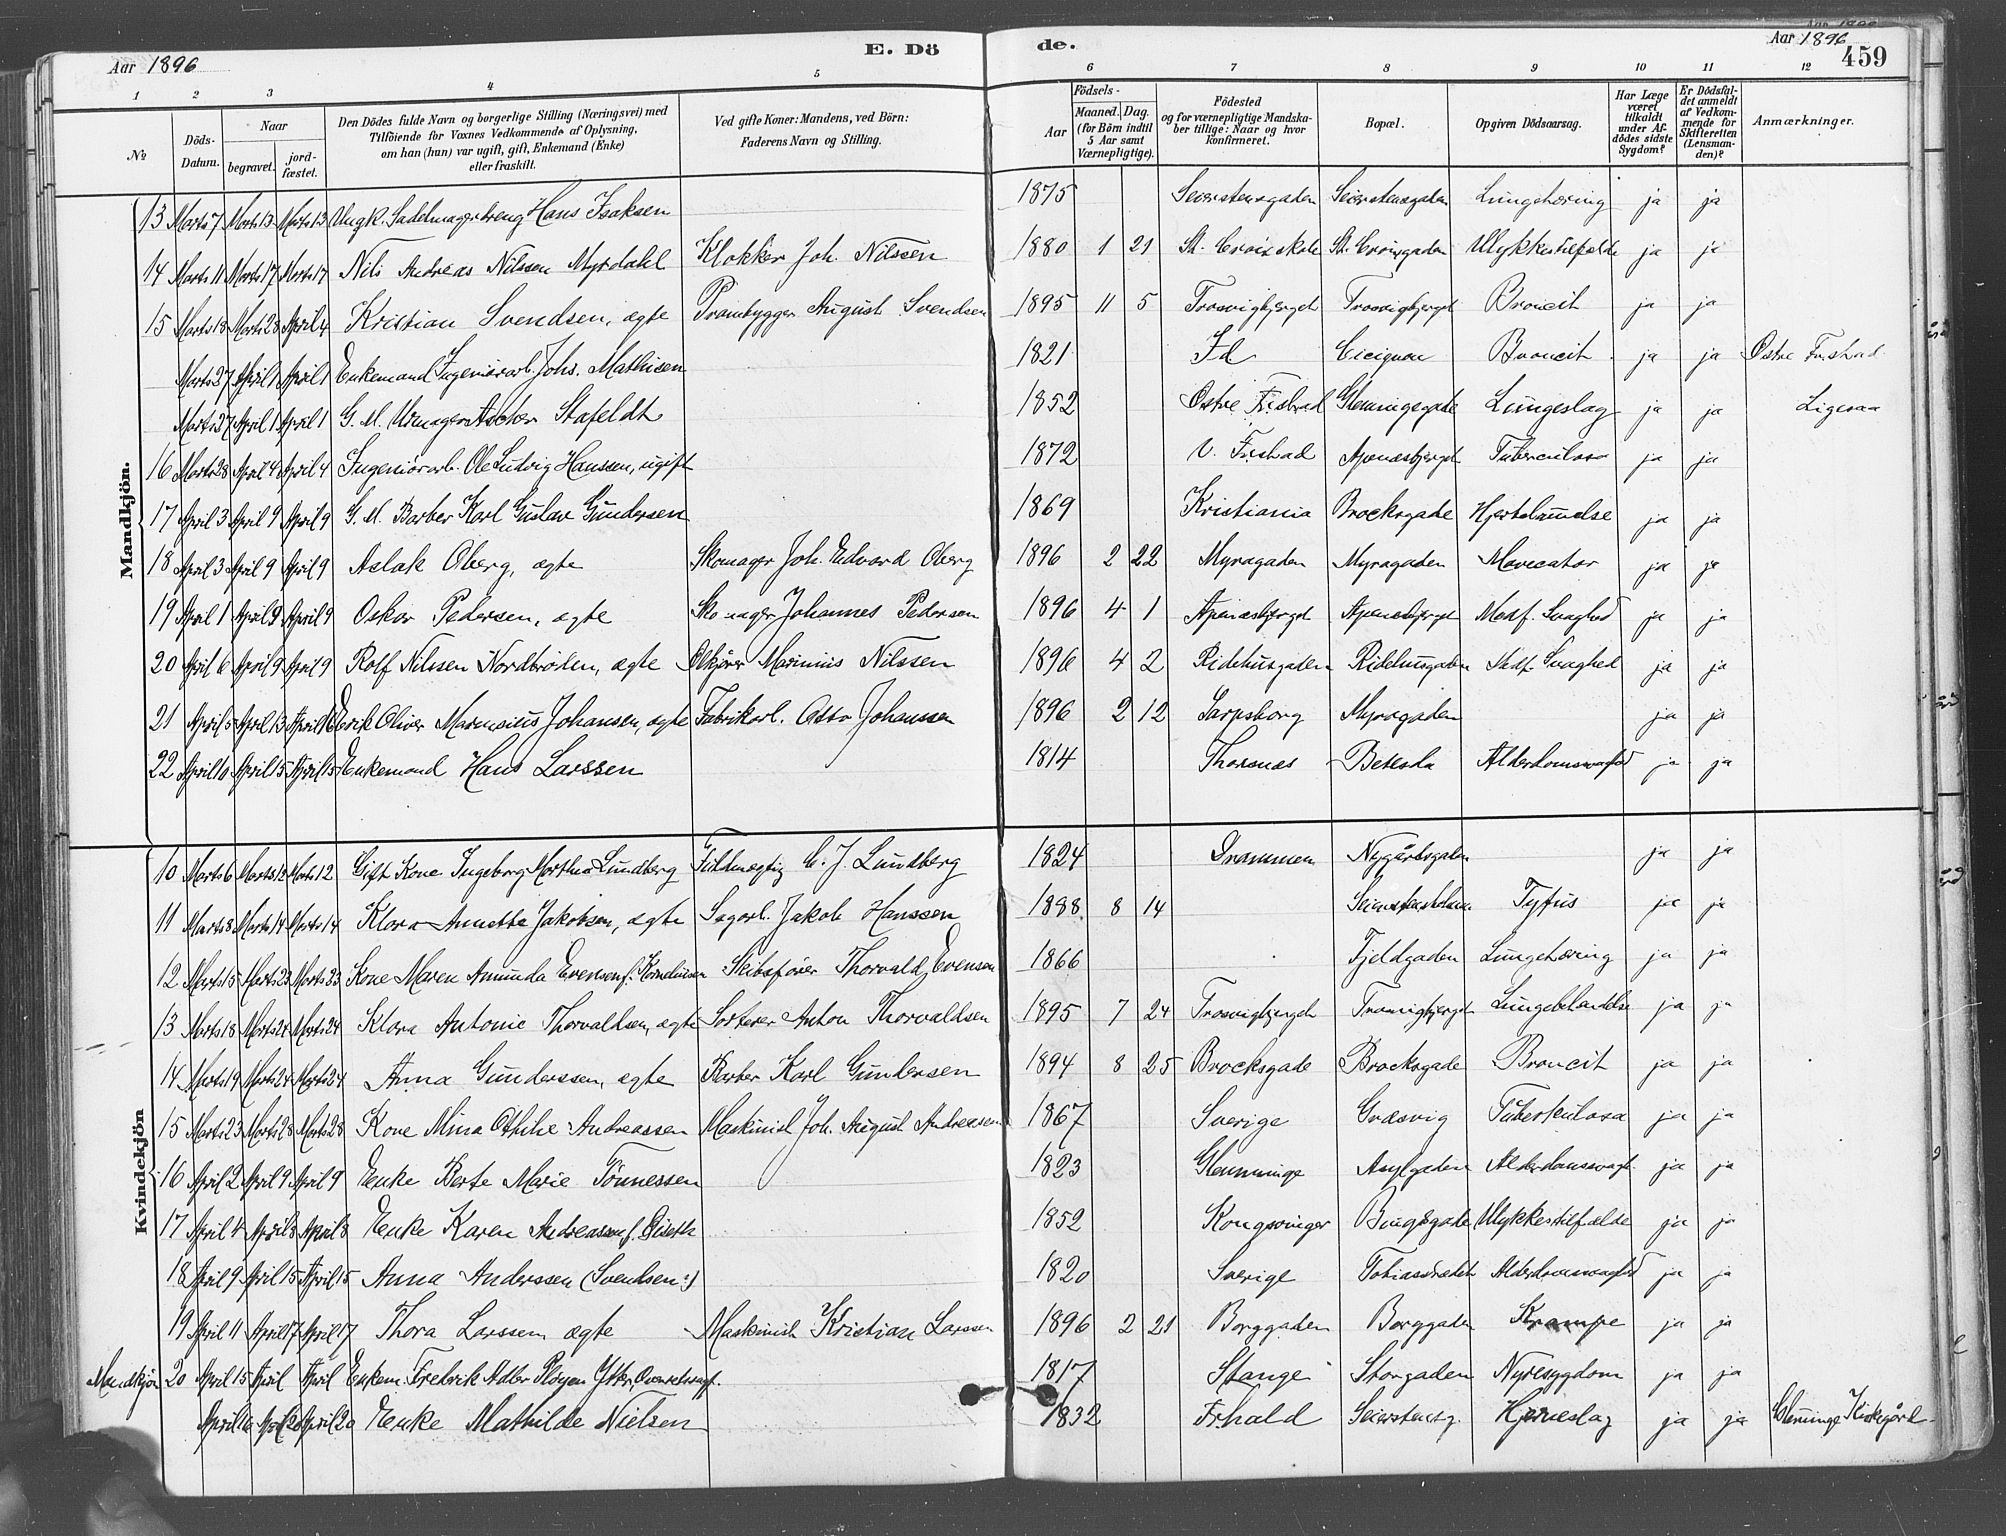 Aar 1896
E. Dö
de.
Aar 1896
459
1 2 3 4 5 6 7 8 9 10 11 12
№ Döds-Datum. Naar begravet. jord-fæstet. Den Dödes fulde Navn og borgerlige Stilling (Næringsvei) med Tilföiende for Voxnes Vedkommende af Oplysning, om han (hun) var ugift, gift, Enkemand (Enke) eller fraskilt. Ved gifte Koner: Mandens, ved Börn: Faderens Navn og Stilling. Födsels- Aar Maaned. Dag. (for Börn indtil 5 Aar samt Værnepligtige). Födested og for værnepligtige Mandskaber tillige: Naar og hvor konfirmeret. Bopæl. Opgiven Dödsaarsag. Har Læge været tilkaldt under Afdödes sidste Sygdom? Er Dödsfaldet anmeldt af Vedkommende for Skifteretten (Lensmanden)? Anmærkninger.
Mandkjön.
13 Marts 7 Marts 13 Marts 13 Ungk. Sadelmagerdreng Hans Isaksen 1875 Seierstensgaden Seierstensgaden Lungetæring ja ja
14 Marts 11 Marts 17 Marts 17 Nils Andreas Nilssen Myrdahl Klokker Joh. Nilssen 1880 1 21 St. Croix skole St. Croixgaden Ulykkestilfælde ja ja
15 Marts 18 Marts 28 April 4 Kristian Svendsen, ægte Prambygger August Svendsen 1895 11 5 Trosvigbjerget Trosvigbjerget Broncit ja ja
Marts 27 April 1 April 1 Enkemand Ingeniørarb. Johs. Mathisen 1821 Id Cicignon Broncit ja ja Østre Fr.stad
Marts 27 April 1 April 1 G. M. Urmager Ascher Stafeldt 1852 Østre Fr.stad Glemmingegade Lungeslag ja ja Ligesaa
16 Marts 28 April 4 April 4 Ingeniørarb. Ole Ludvig Hanssen, ugift 1872 V. Fr.stad Apenæsbjerget Tuberculose ja ja
17 April 3 April 9 April 9 G. M. Barber Karl Gustav Gundersen 1869 Kristiania Brocksgade Hjertelammelse ja ja
18 April 3 April 9 April 9 Aslak Oberg, ægte Skomager Joh. Edvard Oberg 1896 2 22 Myragaden Myragaden ja ja
19 April 1 April 9 April 9 Oskar Pedersen, ægte Skomager Johannes Pedersen 1896 4 1 Apenæsbjerget Apenæsbjerget Medf. Svaghed ja ja
20 April 6 April 9 April 9 Rolf Nilssen Nordbrøden, ægte Ølkjører Marinius Nilssen 1896 4 2 Ridehusgaden Ridehusgaden Medf. Svaghed ja ja
21 April 5 April 13 April 16 Erik Oliver Marensius Johansen, ægte Fabrikarb. Otto Johanssen 1896 2 12 Sarpsborg Myragaden ja ja
22 April 10 April 15 April 15 Enkemand Hans Larssen 1814 Thorsnæs Betesda Alderdomssvaghed ja ja
Kvindekjön
10 Marts 6 Marts 12 Marts 12 Gift Kone Ingeborg Marthea Lundberg Fuldmægtig C. J. Lundberg 1824 Drammen Nygårdsgaden ja ja
11 Marts 8 Marts 14 Marts 14 Klara Annette Jakobsen, ægte Sagarb. Jakob Hanssen 1888 8 14 Tyfus ja ja
12 Marts 15 Marts 23 Marts 23 Kone Maren Amunda Evensen f. Korneliusen Skibsfører Thorvald Evensen 1866 Fjeldgaden Lungetæring ja ja
13 Marts 18 Marts 24 Marts 24 Klara Antonie Thorvaldsen, ægte Sorterer Anton Thorvaldsen 1895 7 24 Trosvigbjerget Trosvigbjerget Lungebetændelse ja ja
14 Marts 19 Marts 24 Marts 24 Anna Gunderssen, ægte Barber Karl Gundersen 1894 8 25 Brocksgade Brocksgade Broncit ja ja
15 Marts 23 Marts 28 Marts 28 Kone Mina Othilie Andreassen Maskinist Joh. August Andreasen 1867 Sverige Græsvig Tuberkulose ja ja
16 April 2 April 9 April 9 Enke Berte Marie Tönnessen 1823 Glemminge Asylgaden Alderdomssvagh. ja ja
17 April 4 April 8 April 8 Enke Karen Andreassen f. 1852 Kongsvinger Ulykkestilfælde ja ja
18 April 9 April 15 April 15 Anna Anderssen (Svendsen?) 1820 Sverige Tobiasstrædet Alderdomssvaghed ja ja
19 April 11 April 17 April 17 Thora Larssen ægte Maskinist Kristian Larssen 1896 2 21 Borggaden Borggaden Krampe ja ja
Mandkjön 20 April 15 April April Enkem. Fredrik Adler Pløyen 1817 Stange Storgaden Nyresygdom ja ja
April 20 April 20 Enke Mathilde Nielsen 1832 Fr.hald Seierstensg. Hjerneslag ja ja Glemminge Kirkegård